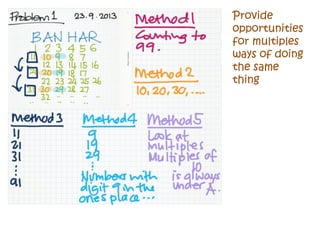 Problem 1 23.9.2013
BAN HAR
1 2 3 4 5 6
10 9 8 7
12 13 14 15 16
20 19 18 17
22 23 24 25 26
30 29 28 27
32
Method 1
Counting to
99.
Method 2
10, 20, 30, ....
Method 3
11
21
31
⋮
91
Method 4
9
19
29
⋮
Numbers with
digit 9 in the
ones place...
Method 5
Look at
multiples
Multiples of
10
is always
under A.
Provide
opportunities
for multiples
ways of doing
the same
thing